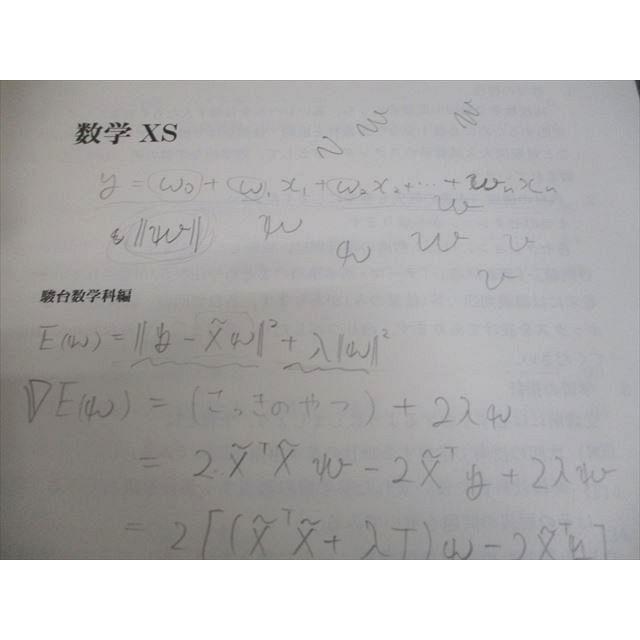 w
w
w
数学 XS
y = w₀ + w₁x₁ + w₂x₂ + ⋯ + wₙxₙ
‖w‖ w w w w v v
駿台数学科編
E(w) = ‖y − X̃w‖² + λ‖w‖²
∇E(w) = (さっきのやつ) + 2λw
= 2X̃ᵀX̃w − 2X̃ᵀy + 2λw
= 2[(X̃ᵀX̃ + λI)w − 2X̃ᵀy]